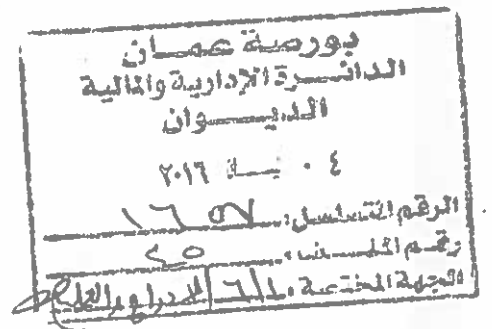 بورصة عمان
الدائرة الإدارية والمالية
الديوان
٠٤ نيسان ٢٠١٦
الرقم المتسلسل:
رقم الملف: ٢٥
الجهة المختصة: